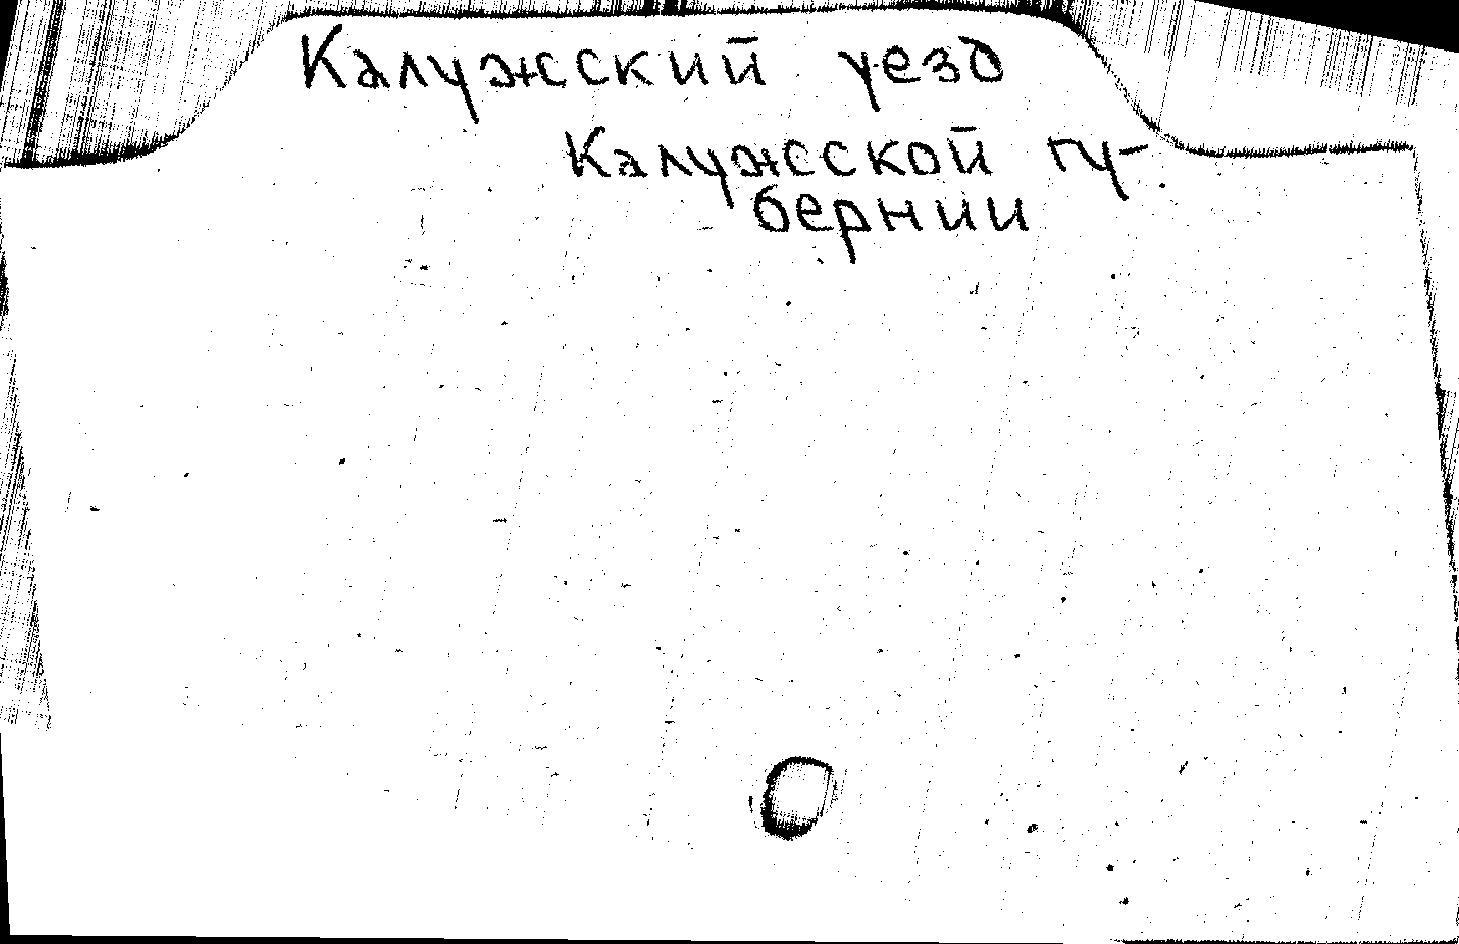 Калужский уезд
Калужской гу-
бернии